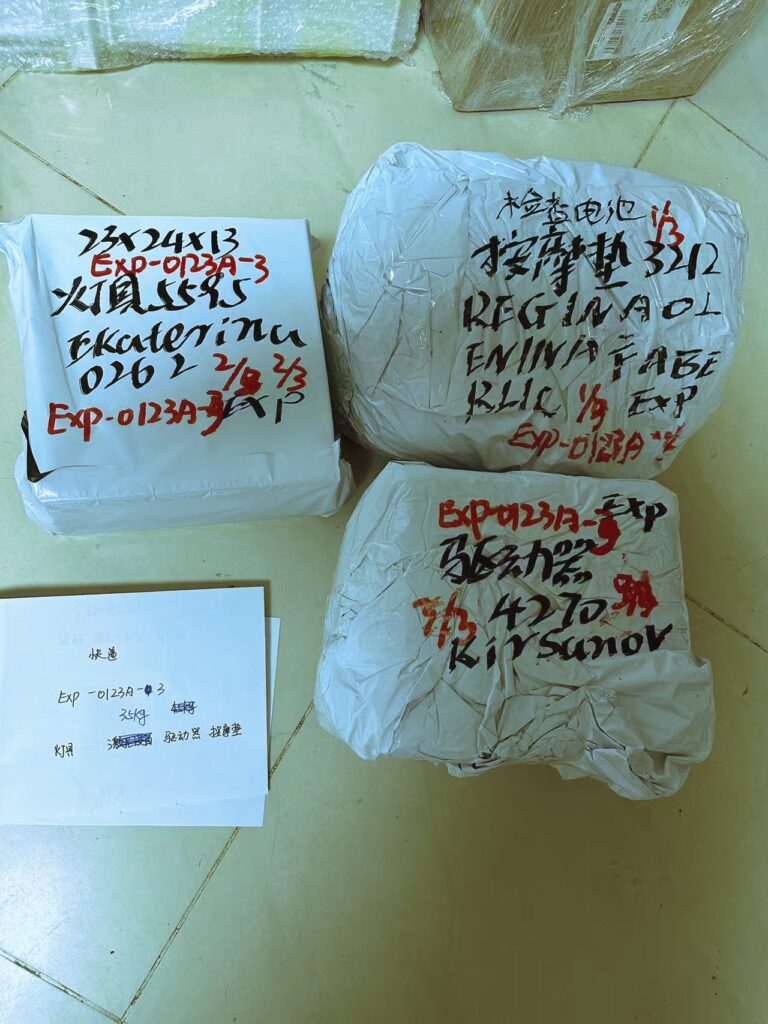 23x24x13
EXP-0123A-3
灯具 5595
EKaterina
0262 2/3
EXP-0123A-3 EXP
检查电池 1/3
按摩垫 3212
REGINA OL
ENINA FABE
RLIC EXP
EXP-0123A-
EXP-0123A-3 Exp
驱动器
4270
Kirsanov
快递
Exp -0123A- 3
35kg
灯具 驱动器 按摩垫